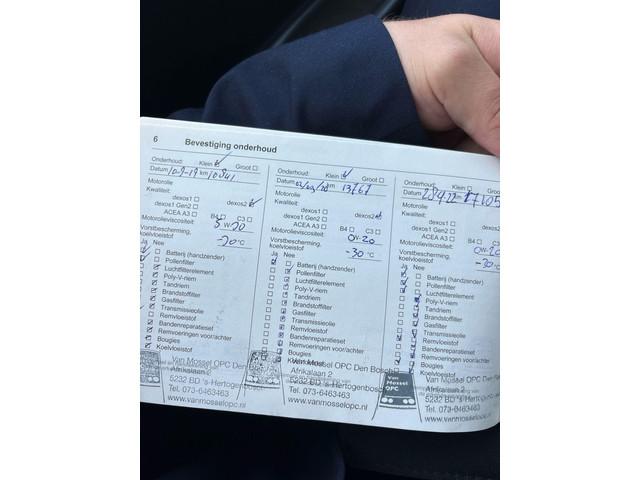 6 Bevestiging onderhoud
Onderhoud: Klein Groot
Datum 10-9-19 km 10841
Motorolie
Kwaliteit: dexos1
dexos2
dexos1 Gen2
ACEA A3 B4 C3
Motorolieviscositeit: 5W-20
Vorstbescherming, koelvloeistof -20 °C
Ja Nee
Batterij (handzender)
Pollenfilter
Luchtfilterelement
Poly-V-riem
Tandriem
Brandstoffilter
Gasfilter
Transmissieolie
Remvloeistof
Bandenreparatieset
Remvoeringen voor/achter
Bougies
Koelvloeistof
Van Mossel OPC Den Bosch
Afrikalaan 2
5232 BD 's-Hertogenbosch
Tel. 073-6463463
www.vanmosselopc.nl
Onderhoud: Klein Groot
Datum km 13767
Motorolie
Kwaliteit:
dexos1 dexos2
dexos1 Gen2
ACEA A3 B4 C3
Motorolieviscositeit: 0W-20
Vorstbescherming, koelvloeistof -30 °C
Ja Nee
Batterij (handzender)
Pollenfilter
Luchtfilterelement
Poly-V-riem
Tandriem
Brandstoffilter
Gasfilter
Transmissieolie
Remvloeistof
Bandenreparatieset
Remvoeringen voor/achter
Bougies
Koelvloeistof
Van Mossel OPC Den Bosch
Afrikalaan 2
5232 BD 's-Hertogenbos
Tel. 073-6463463
www.vanmosselopc.nl
Onderhoud: Klein
Datum
Motorolie
Kwaliteit:
dexos1
dexos1 Gen2
ACEA A3 B4
Motorolieviscositeit:
Vorstbescherming, koelvloeistof -30 °C
Ja Nee
Batterij (handzender)
Pollenfilter
Luchtfilterelement
Poly-V-riem
Tandriem
Brandstoffilter
Gasfilter
Transmissieolie
Remvloeistof
Bandenreparatieset
Remvoeringen voor/achter
Bougies
Koelvloeistof
Van Mossel OPC
Van Mossel OPC Den
Afrikalaan 2
5232 BD 's-Hertogen
Tel. 073-6463463
www.vanmosselopc.nl